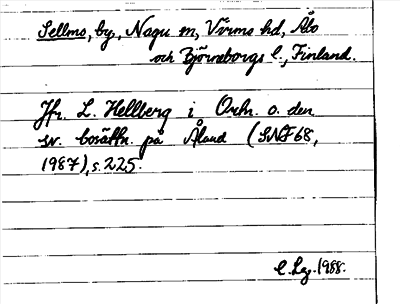 Sellmo, by, Nagu sn, Virmo hd, Åbo
och Björneborgs l., Finland.
Jfr. L. Hellberg i Ortn. o. den
sv. bosättn. på Åland (SNF 68,
1987), s. 225.
1988.